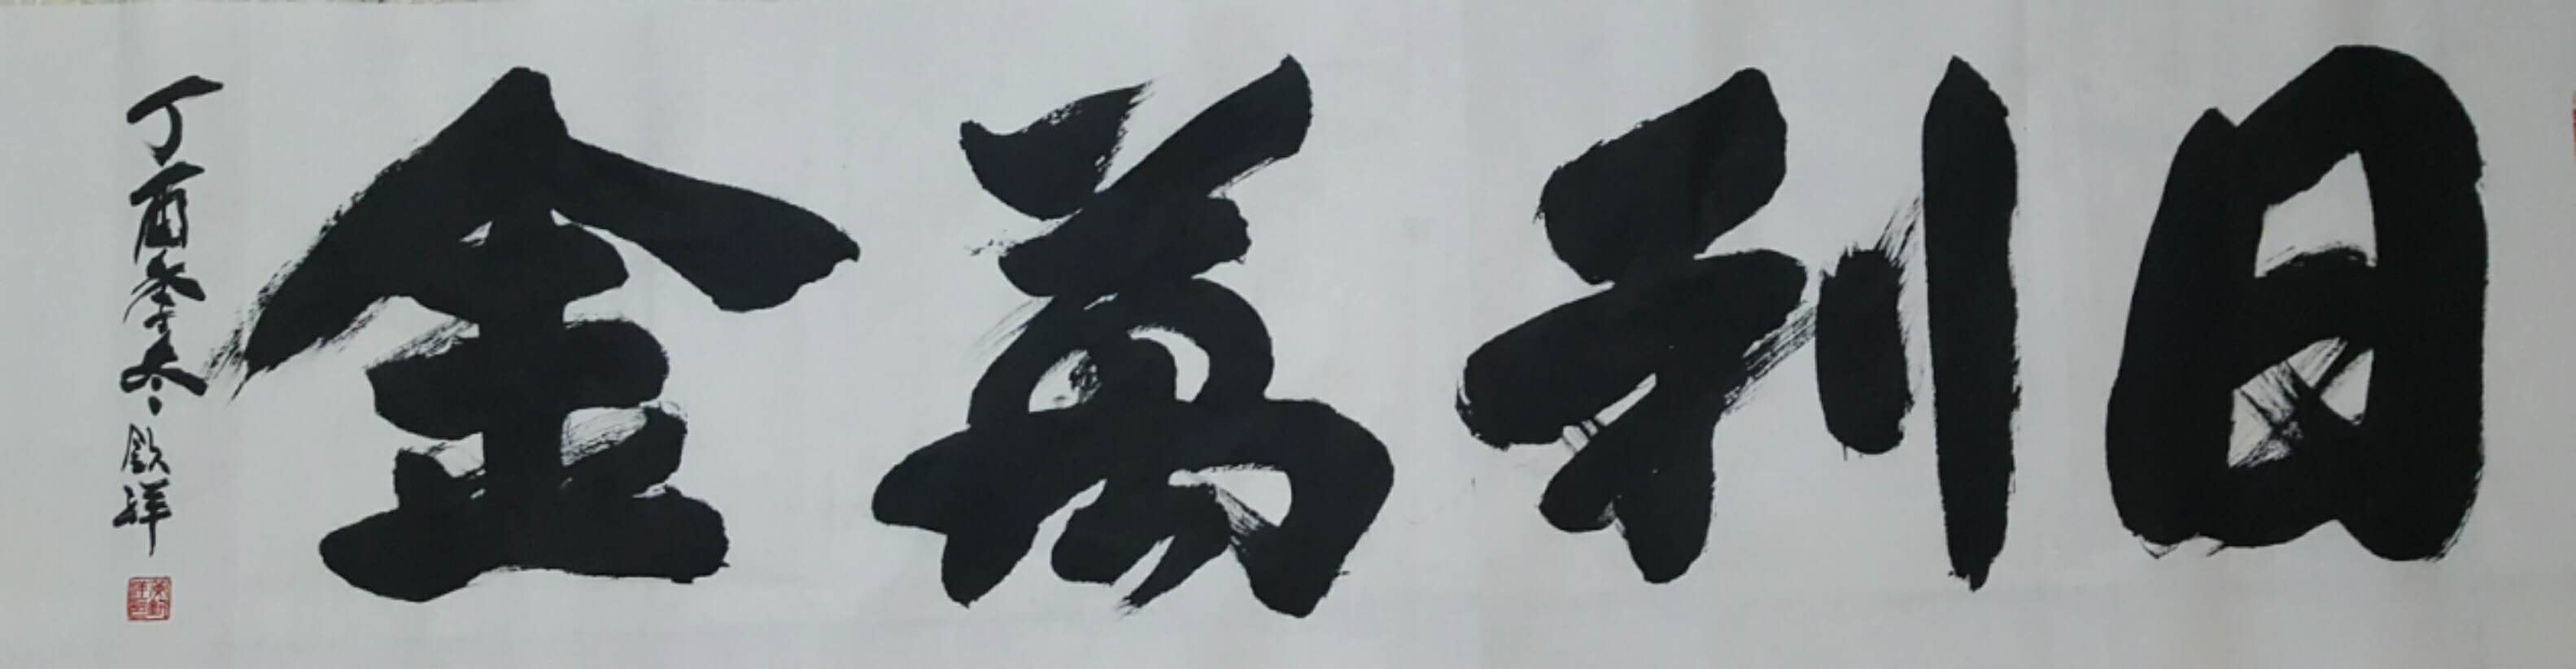 日利萬金
丁酉季冬 欽祥